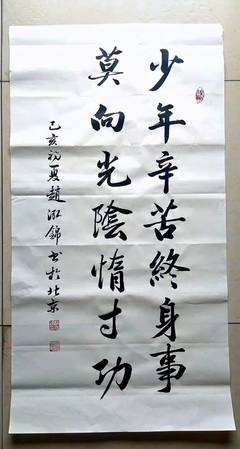 少年辛苦終身事
莫向光陰惰寸功
己亥初夏趙泓錦書於北京